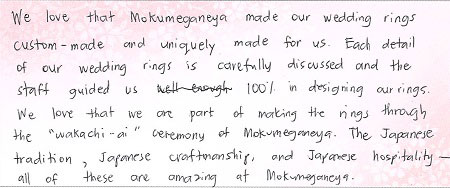 We love that Mokumeganeya made our wedding rings
custom-made and uniquely made for us. Each detail
of our wedding rings is carefully discussed and the
staff guided us well enough 100% in designing our rings.
We love that we are part of making the rings through
the "wakachi-ai" ceremony of Mokumeganeya. The Japanese
tradition, Japanese craftmanship, and Japanese hospitality —
all of these are amazing at Mokumeganeya.